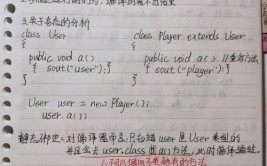 3.关于多态的分析
class User class Player extends User
{ {
public void a() public void a() //重写方法
{ sout("user"); } { sout("player"); }
} }
User user = new Player();
user. a();
静态绑定:对编译器而言,只知道user是User类型的
去user.class找a()方法,此时编译通过